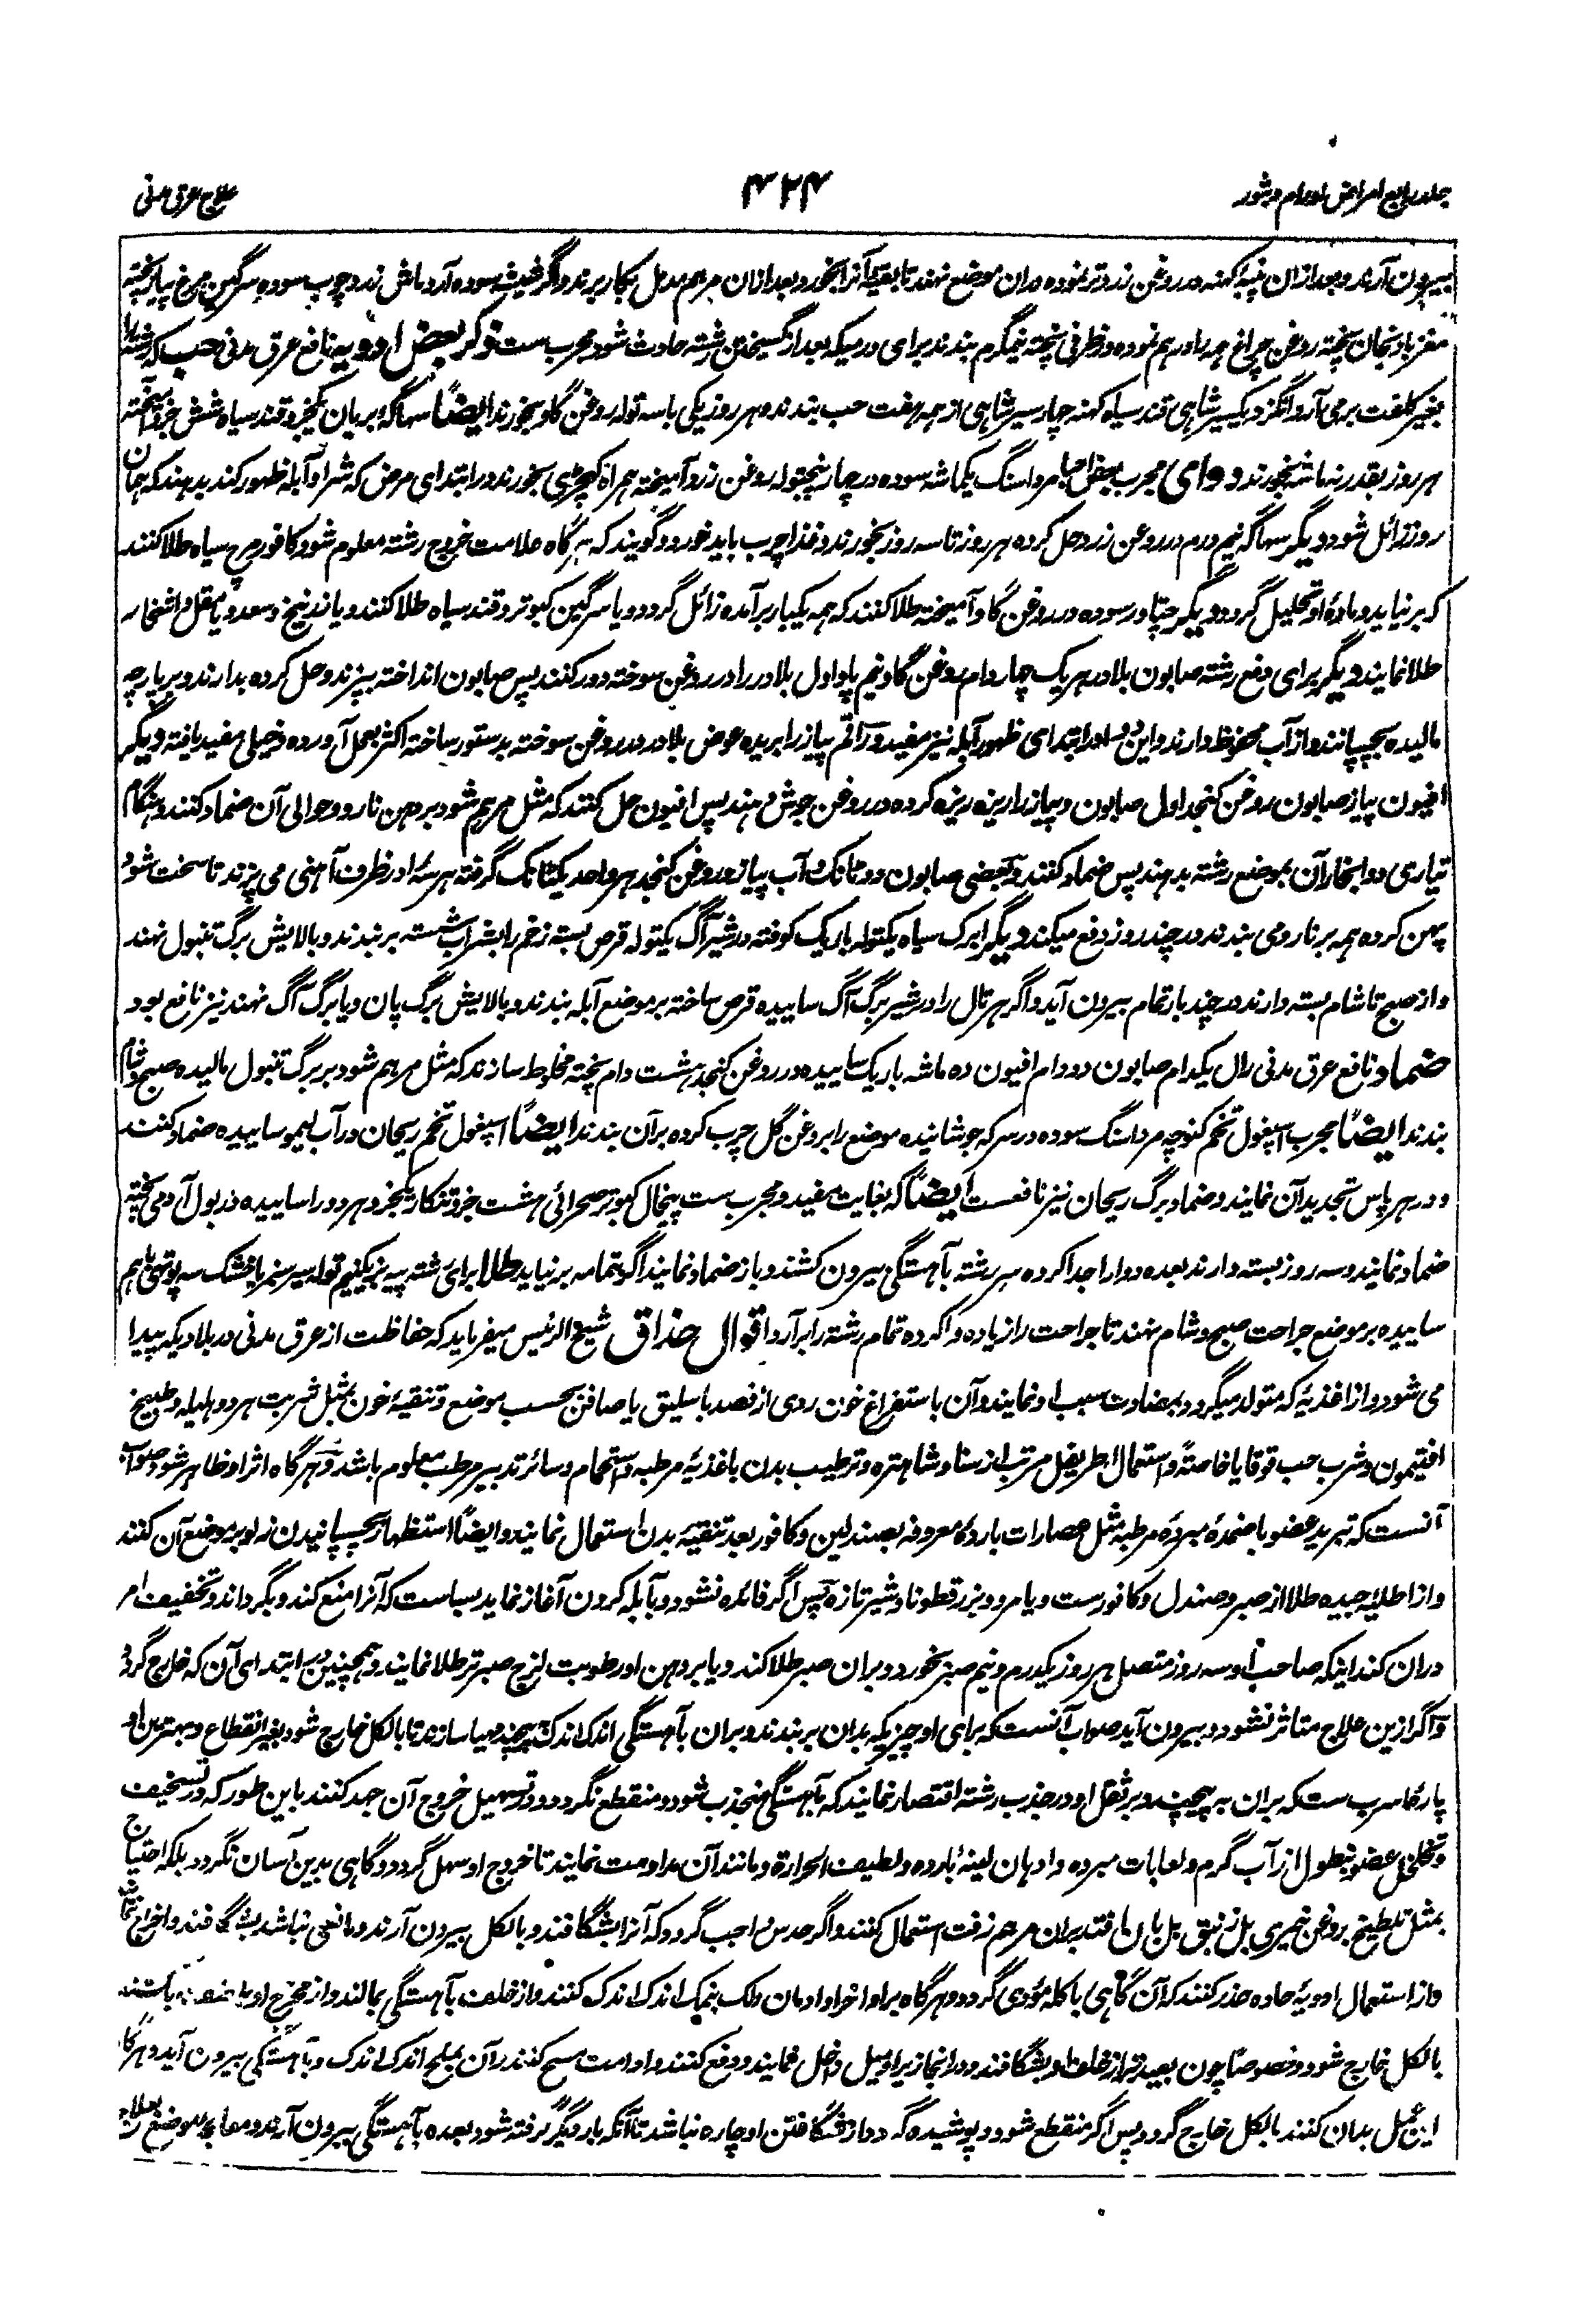 جلد رابع امراض اورام و بثور
۴۲۴
علاج عرق مدنی
بیرون آرند و بعد ازان پنبهٔ کهنه در روغن زرد تر نموده بران موضع نهند تا بقیهٔ آنرا بخورد و بعد ازان مرهم مدمل بکار برند و اگر خبث سوده آرد ماش زرد چوب سوده سرگین مرغ پیاز پخته
مغز بادنجان پخته روغن چراغ همه را درهم نموده در ظرفی پخته نیمگرم بندند برای ورمیکه بعد از گسیختن رشته حادث شود مجرب ست ذکر بعض ادویه نافع عرق مدنی حب که رشته را
بغیر کلفت برمی آرد انگزد یکسیر شاهی قند سیاه کهنه چار سیر شاهی از همه هفت حب بندند و هر روز یکی با سه توله روغن گاو بخورند ایضاً سهاگه بریان یکجزو قند سیاه شش جزو آمیخته
هر روز بقدر نه ماشه بخورند دوای مجرب بعض احبا مرداسنگ یکماشه سوده در چار پنجتوله روغن زرد آمیخته همراه کهچڑی بخورند در ابتدای مرض که شرا و آبله ظهور کند بدهند که همان
روز زائل شود دیگر سهاگه نیم درم در روغن زرد حل کرده هر روز تا سه روز بخورند و غذا چرب باید خورد و گویند که هرگاه علامت خروج رشته معلوم شود کافور مرچ سیاه طلا کنند
که برنیاید و مادهٔ او تحلیل گردد دیگر چتپاور سوده در روغن گاو آمیخته طلا کنند که همه یکبار برآمده زائل گردد و یا سرگین کبوتر و قند سیاه طلا کنند و یا زرنیخ و سعد و یا مقل و اشخار
طلا نمایند دیگر برای دفع رشته صابون بلادر هر یک چهار دام روغن گاو نیم پاو اول بلادر را در روغن سوخته دور کنند پس صابون انداخته بپزند و حل کرده بدارند و بر پارچه
مالیده بچسپانند و از آب محفوظ دارند و این دوا در ابتدای ظهور آبله نیز مفید و راقم پیاز را بریده عوض بلادر در روغن سوخته بدستور ساخته اکثر بعمل آورده و خیلی مفید یافته دیگر
افیون پیاز صابون روغن کنجد اول صابون و پیاز را ریزه ریزه کرده در روغن جوش دهند پس افیون حل کنند که مثل مرهم شود بر دهن نارو و حوالی آن ضماد کنند و هنگام
تیاری دوا بخار آن بموضع رشته بدهند پس ضماد کنند و بعضی صابون دو تانک و آب پیاز و روغن کنجد هر واحد یکتانک گرفته هر سه را در ظرف آهنی می پزند تا سخت شود
پهن کرده همه بر نارو می بندند در چند روز دفع میکند دیگر ابرک سیاه یکتوله باریک کوفته در شیر آگ یکتوله قرص بسته زخم را بشراب شسته بر بندند و بالایش برگ تنبول نهند
و از صبح تا شام بسته دارند در چند بار تمام بیرون آید و اگر هرتال را در شیر برگ آگ ساییده قرص ساخته بر موضع آبله بندند و بالایش برگ پان و یا برگ آگ نهند نیز نافع بود
ضماد نافع عرق مدنی رال یکدام صابون دو دام افیون ده ماشه باریک ساییده در روغن کنجد هشت دام پخته مخلوط سازند که مثل مرهم شود بر برگ تنبول مالیده صبح و شام
بندند ایضاً مجرب اسپغول تخم کنوچه مرداسنگ سوده در سرکه جوشانیده موضع را بروغن گل چرب کرده بران بندند ایضاً اسپغول تخم ریحان در آب لیمو ساییده ضماد کنند
و در هر پاس تجدید آن نمایند و ضماد برگ ریحان نیز نافعست ایضاً که بغایت مفید و مجرب ست پیخال کبوتر صحرائی هشت جزو تنکار یکجزو هر دو را ساییده در بول آدمی پخته
ضماد نمایند و سه روز بسته دارند بعده دوا را جدا کرده سر رشته بآهستگی بیرون کشند و باز ضماد نمایند اگر بتمامه برنیاید طلا برای رشته پیه بز یکنیم توله سیر سبز یا خشک سه پوتهی باهم
ساییده بر موضع جراحت صبح و شام نهند تا جراحت را زیاده وا کرده تمام رشته را برآرد اقوال حذاق شیخ الرئیس میفرماید که حفاظت از عرق مدنی در بلادیکه پیدا
می شود و از اغذیه که متولد میگردد بمضادت سبب او نمایند و آن باستفراغ خون ردی از فصد باسلیق یا صافن بحسب موضع و تنقیهٔ خون بمثل شربت هر دو هلیله و طبیخ
افتیمون و شرب حب قوقایا خاصةً و استعمال اطریفل مرتب از سنا و شاهتره و ترطیب بدن باغذیهٔ مرطبه و استحمام و سائر تدبیر مرطب معلوم باشد و هرگاه اثر او ظاهر شود صواب
آنست که تبرید عضو باضمدهٔ مبردهٔ مرطبه مثل عصارات باردهٔ معروفه بصندلین و کافور بعد تنقیهٔ بدن استعمال نمایند و ایضاً استظهار بچسپانیدن زلو بر موضع آن کنند
و از اطلیهٔ جیده طلا از صبر و صندل و کافورست و یا مر و بزرقطونا و شیر تازه پس اگر فائده نشود و بآبله کردن آغاز نماید سیاست که آنرا منع کند و بگرداند و تخفیف امر
دران کند اینکه صاحب او سه روز متصل هر روز یکدرم و نیم صبر بخورد و بران صبر طلا کند و یا بر دهن او رطوبت لزج صبر تر طلا نمایند و همچنین در ابتدای آن که خارج گردد
و اگر ازین علاج متاثر نشود و بیرون آید صواب آنست که برای او چیزیکه بدان بر بندند و بران بآهستگی اندک اندک پیچند مهیا سازند تا بالکل خارج شود بغیر انقطاع و بهترین او
پارهٔ سرب ست که بران بر پیچیده و بر ثقل او در جذب رشته اقتصار نمایند که بآهستگی منجذب شود و منقطع نگردد و در تسهیل خروج آن جهد کنند باین طور که در تسخیف
و تخلخل عضو بنطول از آب گرم و لعابات مبرده و ادهان لینهٔ بارده و لطیف الحرارة و مانند آن مداومت نمایند تا خروج او سهل گردد و گاهی بدین آسان نگردد بلکه احتیاج
بمثل تلطیخ بروغن خیری بل زنبق بل بان افتد بران مرهم زفت استعمال کنند و اگر حدس واجب گردد که آنرا بشگافند و بالکل بیرون آرند و مانعی نباشد بشگافند و اخراج نمایند
و از استعمال ادویهٔ حاده حذر کنند که آن گاهی باکله مؤدی گردد و هرگاه براو اخراو ادمان دلک بنمک اندک اندک کنند و از خلف بآهستگی بمالند و از مخرج او
بالکل خارج شود و خصوصاً چون بعید تر از خلف او بشگافند و در انجا زیر او میل داخل نمایند و دفع کنند و ادامت مسح کنند بران بملح اندک اندک و بآهستگی بیرون آید و هرگاه
این عمل بدان کنند بالکل خارج گردد پس اگر منقطع شود و پوشیده گردد از شگافتن او چاره نباشد تا آنکه بار دیگر گرفته شود بعده بآهستگی بیرون آرند و معالجهٔ موضع